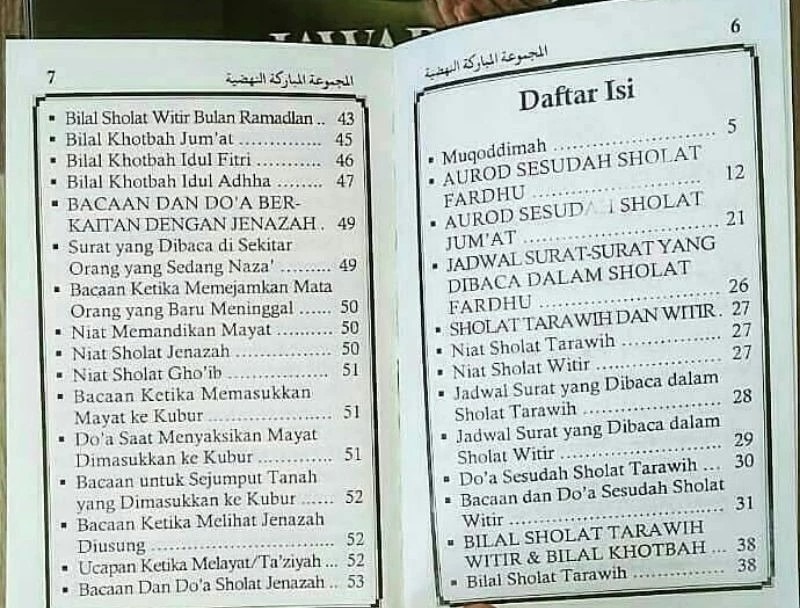 6
المجموعة المباركة النهضية
Daftar Isi
▪ Muqoddimah ........................ 5
▪ AUROD SESUDAH SHOLAT
FARDHU ........................ 12
▪ AUROD SESUDAH SHOLAT
JUM'AT ........................ 21
▪ JADWAL SURAT-SURAT YANG
DIBACA DALAM SHOLAT
FARDHU ........................ 26
▪ SHOLAT TARAWIH DAN WITIR . 27
▪ Niat Sholat Tarawih ............... 27
▪ Niat Sholat Witir .................. 27
▪ Jadwal Surat yang Dibaca dalam
Sholat Tarawih ..................... 28
▪ Jadwal Surat yang Dibaca dalam
Sholat Witir ........................ 29
▪ Do'a Sesudah Sholat Tarawih ... 30
▪ Bacaan dan Do'a Sesudah Sholat
Witir .............................. 31
▪ BILAL SHOLAT TARAWIH
WITIR & BILAL KHOTBAH ... 38
▪ Bilal Sholat Tarawih .............. 38
7
المجموعة المباركة النهضية
▪ Bilal Sholat Witir Bulan Ramadlan .. 43
▪ Bilal Khotbah Jum'at .............. 45
▪ Bilal Khotbah Idul Fitri ........... 46
▪ Bilal Khotbah Idul Adhha ........ 47
▪ BACAAN DAN DO'A BER-
KAITAN DENGAN JENAZAH . 49
▪ Surat yang Dibaca di Sekitar
Orang yang Sedang Naza' ......... 49
▪ Bacaan Ketika Memejamkan Mata
Orang yang Baru Meninggal ...... 50
▪ Niat Memandikan Mayat .......... 50
▪ Niat Sholat Jenazah ................ 50
▪ Niat Sholat Gho'ib ................. 51
▪ Bacaan Ketika Memasukkan
Mayat ke Kubur ..................... 51
▪ Do'a Saat Menyaksikan Mayat
Dimasukkan ke Kubur ............. 51
▪ Bacaan untuk Sejumput Tanah
yang Dimasukkan ke Kubur ...... 52
▪ Bacaan Ketika Melihat Jenazah
Diusung ............................. 52
▪ Ucapan Ketika Melayat/Ta'ziyah ... 52
▪ Bacaan Dan Do'a Sholat Jenazah .. 53